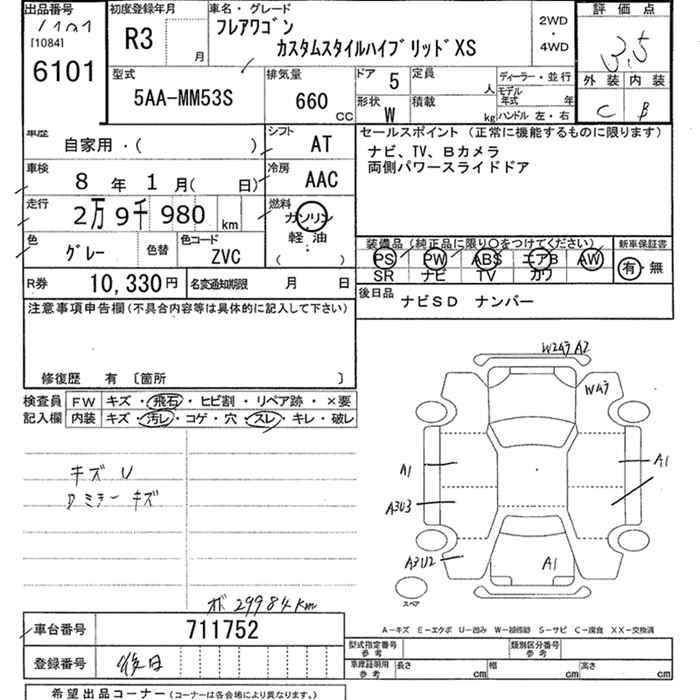 出品番号
[1084]
6101
初度登録年月
R3
月
車名・グレード
フレアワゴン
カスタムスタイルハイブリッドXS
2WD
・
4WD
評価点
3.5
外装 内装
C B
型式
5AA-MM53S
排気量
660
CC
ドア 5
形状 W
定員
人
積載
kg
ディーラー・並行
モデル年式 年
ハンドル 左・右
車歴
自家用・( )
シフト
AT
車検
8 年 1 月( 日)
冷房
AAC
走行
2万9千980 km
燃料
ガソリン
軽油
:
( )
色
グレー
色替
色コード
ZVC
R券 10,330円
名変通知期限 月 日
セールスポイント (正常に機能するものに限ります)
ナビ、TV、Bカメラ
両側パワースライドドア
装備品(純正品に限り○をつけてください)
PS PW ABS エアB AW
SR ナビ TV カワ
新車保証書
有・無
後日品
ナビSD ナンバー
注意事項申告欄(不具合内容等は具体的に記入して下さい)
修復歴 有 〔箇所 〕
検査員
記入欄
FW キズ・飛石・ヒビ割・リペア跡・×要
内装 キズ・汚レ・コゲ・穴・スレ・キレ・破レ
キズ U
ミラー キズ
29984km
W2ムラ A2
Wムラ
A1
A1
A3U3
A3U2
A1
スペア
A-キズ E-エクボ U-凹み W-補修跡 S-サビ C-腐食 XX-交換済
車台番号 711752
登録番号 後日
型式指定番号
参考
類別区分番号
参考
車庫証明用
参考
長さ cm 幅 cm 高さ cm
希望出品コーナー(コーナーは各会場により異なります。)